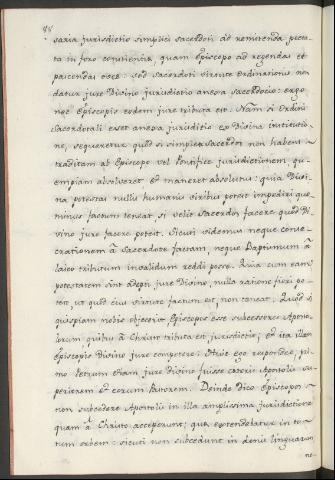 88
saria jurisdictio simplici sacerdoti ad remittenda pecca-
ta in foro conscientiæ, quam Episcopo ad regendas et
pascendas oves: sed Sacerdoti virtute Ordinationis non
datur jure Divino jurisdictio anexa sacerdotio: ergo
neq Episcopis eodem jure tributa est. Nam si Ordini
Sacerdotali esset anexa jurisdictio ex Divina institutio-
ne, sequeretur quod si simplex sacerdos non habens
traditam ab Episcopo vel Pontifice jurisdictionem, qu-
empiam absolveret, et maneret absolutus: quia Divi-
na potestas nullis humanis viribus potest impediri quo
minus factum teneat, si velit Sacerdos facere quod Di-
vino jure facere potest. Sicuti videmus neque conse-
crationem à Sacerdote factam, neque Baptismum à
laico tributum invalidum reddi posse. Quia cum eam
potestatem sint adepti jure Divino, nulla ratione fieri po-
test, ut quod ejus virtute factum est, non teneat. Quod si
quispiam nobis objecerit Episcopos esse successores Aposto-
lorum, quibus à Christo tributa est jurisdictio; et ita illam
Episcopis Divino jure competere. Huic ego respondeo, pri-
mo Petrum etiam jure Divino fuisse cæteris Apostolis su-
periorem et eorum Pastorem. Deinde Dico Episcopos
non succedere Apostolis in illa amplissima jurisdictione
quam à Christo acceperunt; quæ extendebatur in to-
tum orbem: sicuti non succedunt in donis linguarum
ne-